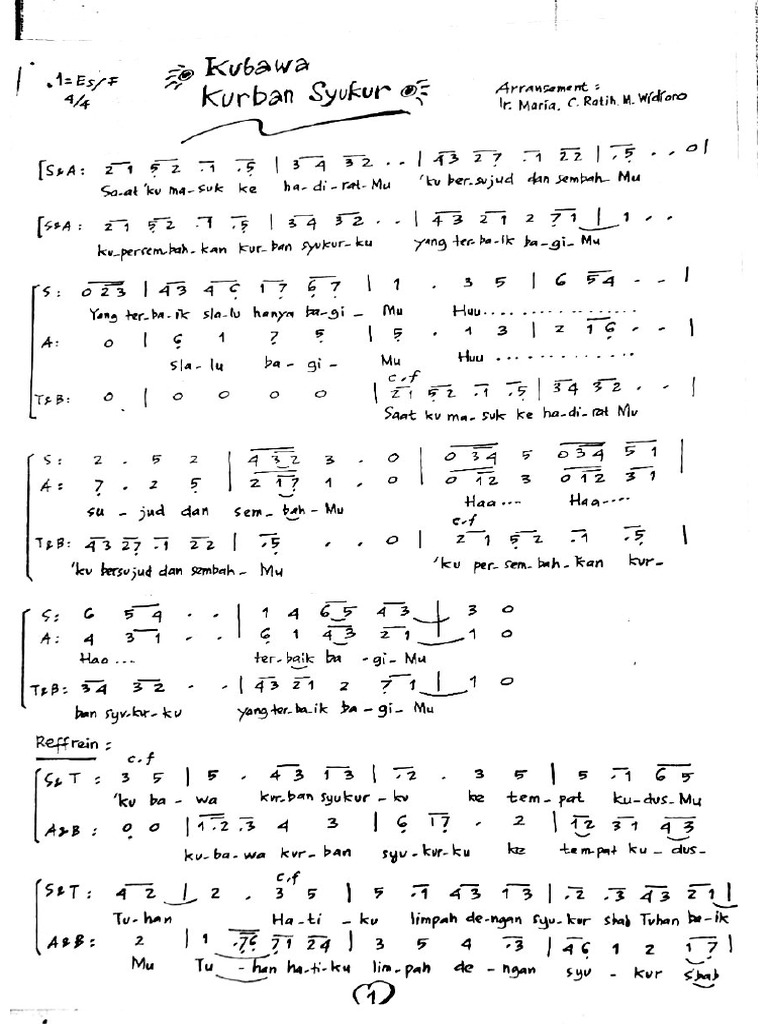 Kubawa
Kurban Syukur
1=Es/F
4/4
Arransement :
Ir. Maria. C. Ratih. M. Widioro
S&A: 21 52 .1 .5 | 34 32 . . | 43 27 .1 22 | .5 . . 0 |
Saat 'ku ma-suk ke ha-di-rat-Mu 'ku ber-sujud dan sembah-Mu
S&A: 21 52 .1 .5 | 34 32 . . | 43 21 2 71 | 1 . .
ku-persem-bah-kan kur-ban syukur-ku yang ter-ba-ik ba-gi-Mu
S: 0 23 | 43 46 17 67 | 1 . 3 5 | 6 54 . . |
Yang ter-ba-ik sla-lu hanya ba-gi- Mu Huu..................
A: 0 | 6 1 7 5 | 5 . 1 3 | 2 16 . . |
sla-lu ba-gi- Mu Huu..............
c.f
T&B: 0 | 0 0 0 0 | 21 52 .1 .5 | 34 32 . . |
Saat ku ma-suk ke ha-di-rat Mu
S: 2 . 5 2 | 432 3 . 0 | 034 5 034 51 |
A: 7 . 2 5 | 217 1 . 0 | 012 3 012 31 |
su - jud dan sem-bah-Mu Haa.... Haa....
c.f
T&B: 43 27 .1 22 | .5 . . 0 | 21 52 .1 .5 |
'ku bersujud dan sembah-Mu 'ku per-sem-bah-kan kur-
S: 6 54 . . | 1 4 65 43 | 3 0
A: 4 31 . . | 6 1 43 21 | 1 0
Haa... ter-baik ba-gi-Mu
T&B: 34 32 . . | 43 21 2 71 | 1 0
ban syu-kur-ku yang ter-ba-ik ba-gi-Mu
Reffrein :
c.f
S&T : 3 5 | 5 . 43 13 | .2 . 3 5 | 5 .1 65
'ku ba-wa kur-ban syukur-ku ke tem-pat ku-dus-Mu
A&B : 0 0 | 1.2 .3 4 3 | 6 17 . 2 | 12 31 43
ku-ba-wa kur-ban syu-kur-ku ke tempat ku-dus-
c.f
S&T: 42 | 2 . 3 5 | 5 .1 43 13 | .2 .3 43 21 |
Tu-han Ha-ti-ku limpah de-ngan syu-kur sbab Tuhan ba-ik
A&B: 2 | 1 .76 71 24 | 3 5 4 .3 | 46 1 2 17 |
Mu Tu-han ha-ti-ku lim-pah de-ngan syu-kur sbab
1